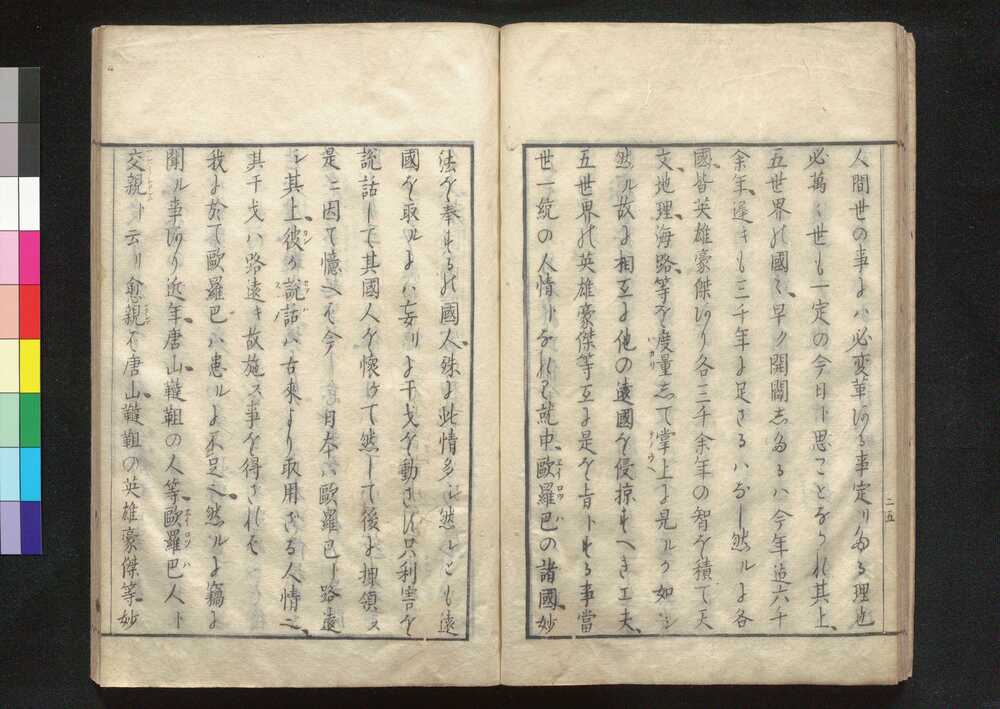 人間世の事よハ必変革ゟる事定リたる理也
必萬〻世も一定の今日ト思ことなかれ其上、
五世界の國〻、早ク開闢したるハ今年迠六千
余年、遅キも三千年に足さるハなし然ルに各
國、皆英雄豪傑あり各三千余年の智を積て天
文、地理、海路、等を度量して掌上に見ルカ如シ
然ル故に相互に他の遠國を侵掠すへき工夫、
五世界の英雄豪傑等互に是を旨トする事當
世一統の人情トなれり就中、歐羅巴の諸國、妙
法を奉するの國人、殊に此情多シ然レとも遠
國を取ルにハ妄リに干戈を動さす只利害を
説話して其國人を懐けて然して後に押領ス
是ニ因て憶へは今し、日本ハ歐羅巴ト路遠
シ其上、彼カ説話ハ古来より取用さる人情也、
其干戈ハ路遠キ故施ス事を得されは
我に於て歐羅巴ハ患ルに不足也、然ルに竊に
聞ル事あり近年、唐山、韃靼の人等、歐羅巴人ト
交親ト云リ愈親は唐山、韃靼の英雄豪傑等、妙
二五